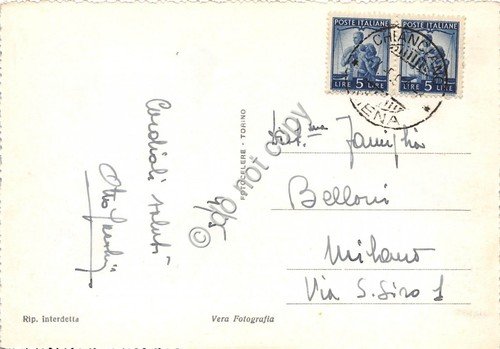 POSTE ITALIANE
LIRE 5 LIRE
POSTE ITALIANE
LIRE 5 LIRE
SIENA
Cordiali saluti
FOTOCELERE - TORINO
© do not copy
Dist.ma Famiglia
Belloni
Milano
Via S. Siro 1
Rip. interdetta
Vera Fotografia